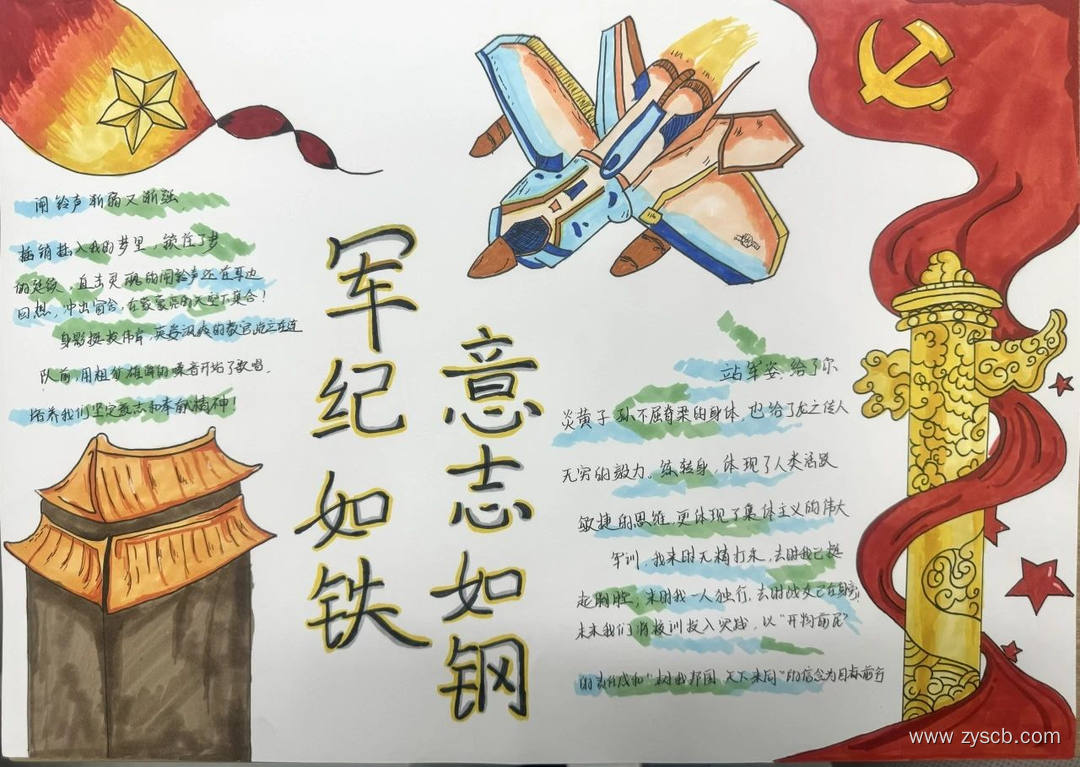 闹铃声渐弱又渐强
插销插入我的梦里，锁住了梦
的延续，直击灵魂的闹铃声还在耳边
回想，冲出宿舍，在蒙蒙亮的天空下集合！
身影挺拔伟岸，英姿飒爽的教官屹立在连
队前，用粗犷雄浑的嗓音开始了歌唱。
培养我们坚定意志和奉献精神！
军纪如铁
意志如钢
站军姿，给了尔
炎黄子孙不屈脊梁的身体，也给了龙之传人
无穷的毅力。练转身，体现了人类活跃
敏捷的思维，更体现了集体主义的伟大
军训，我来时无精打采，去时我已挺
起胸膛，来时我一人独行，去时战友已在身旁
未来我们将被训投入实践，以“开物前民”
的责任感和“树我邦国，天下来同”的信念为目标前行
www.zyscb.com